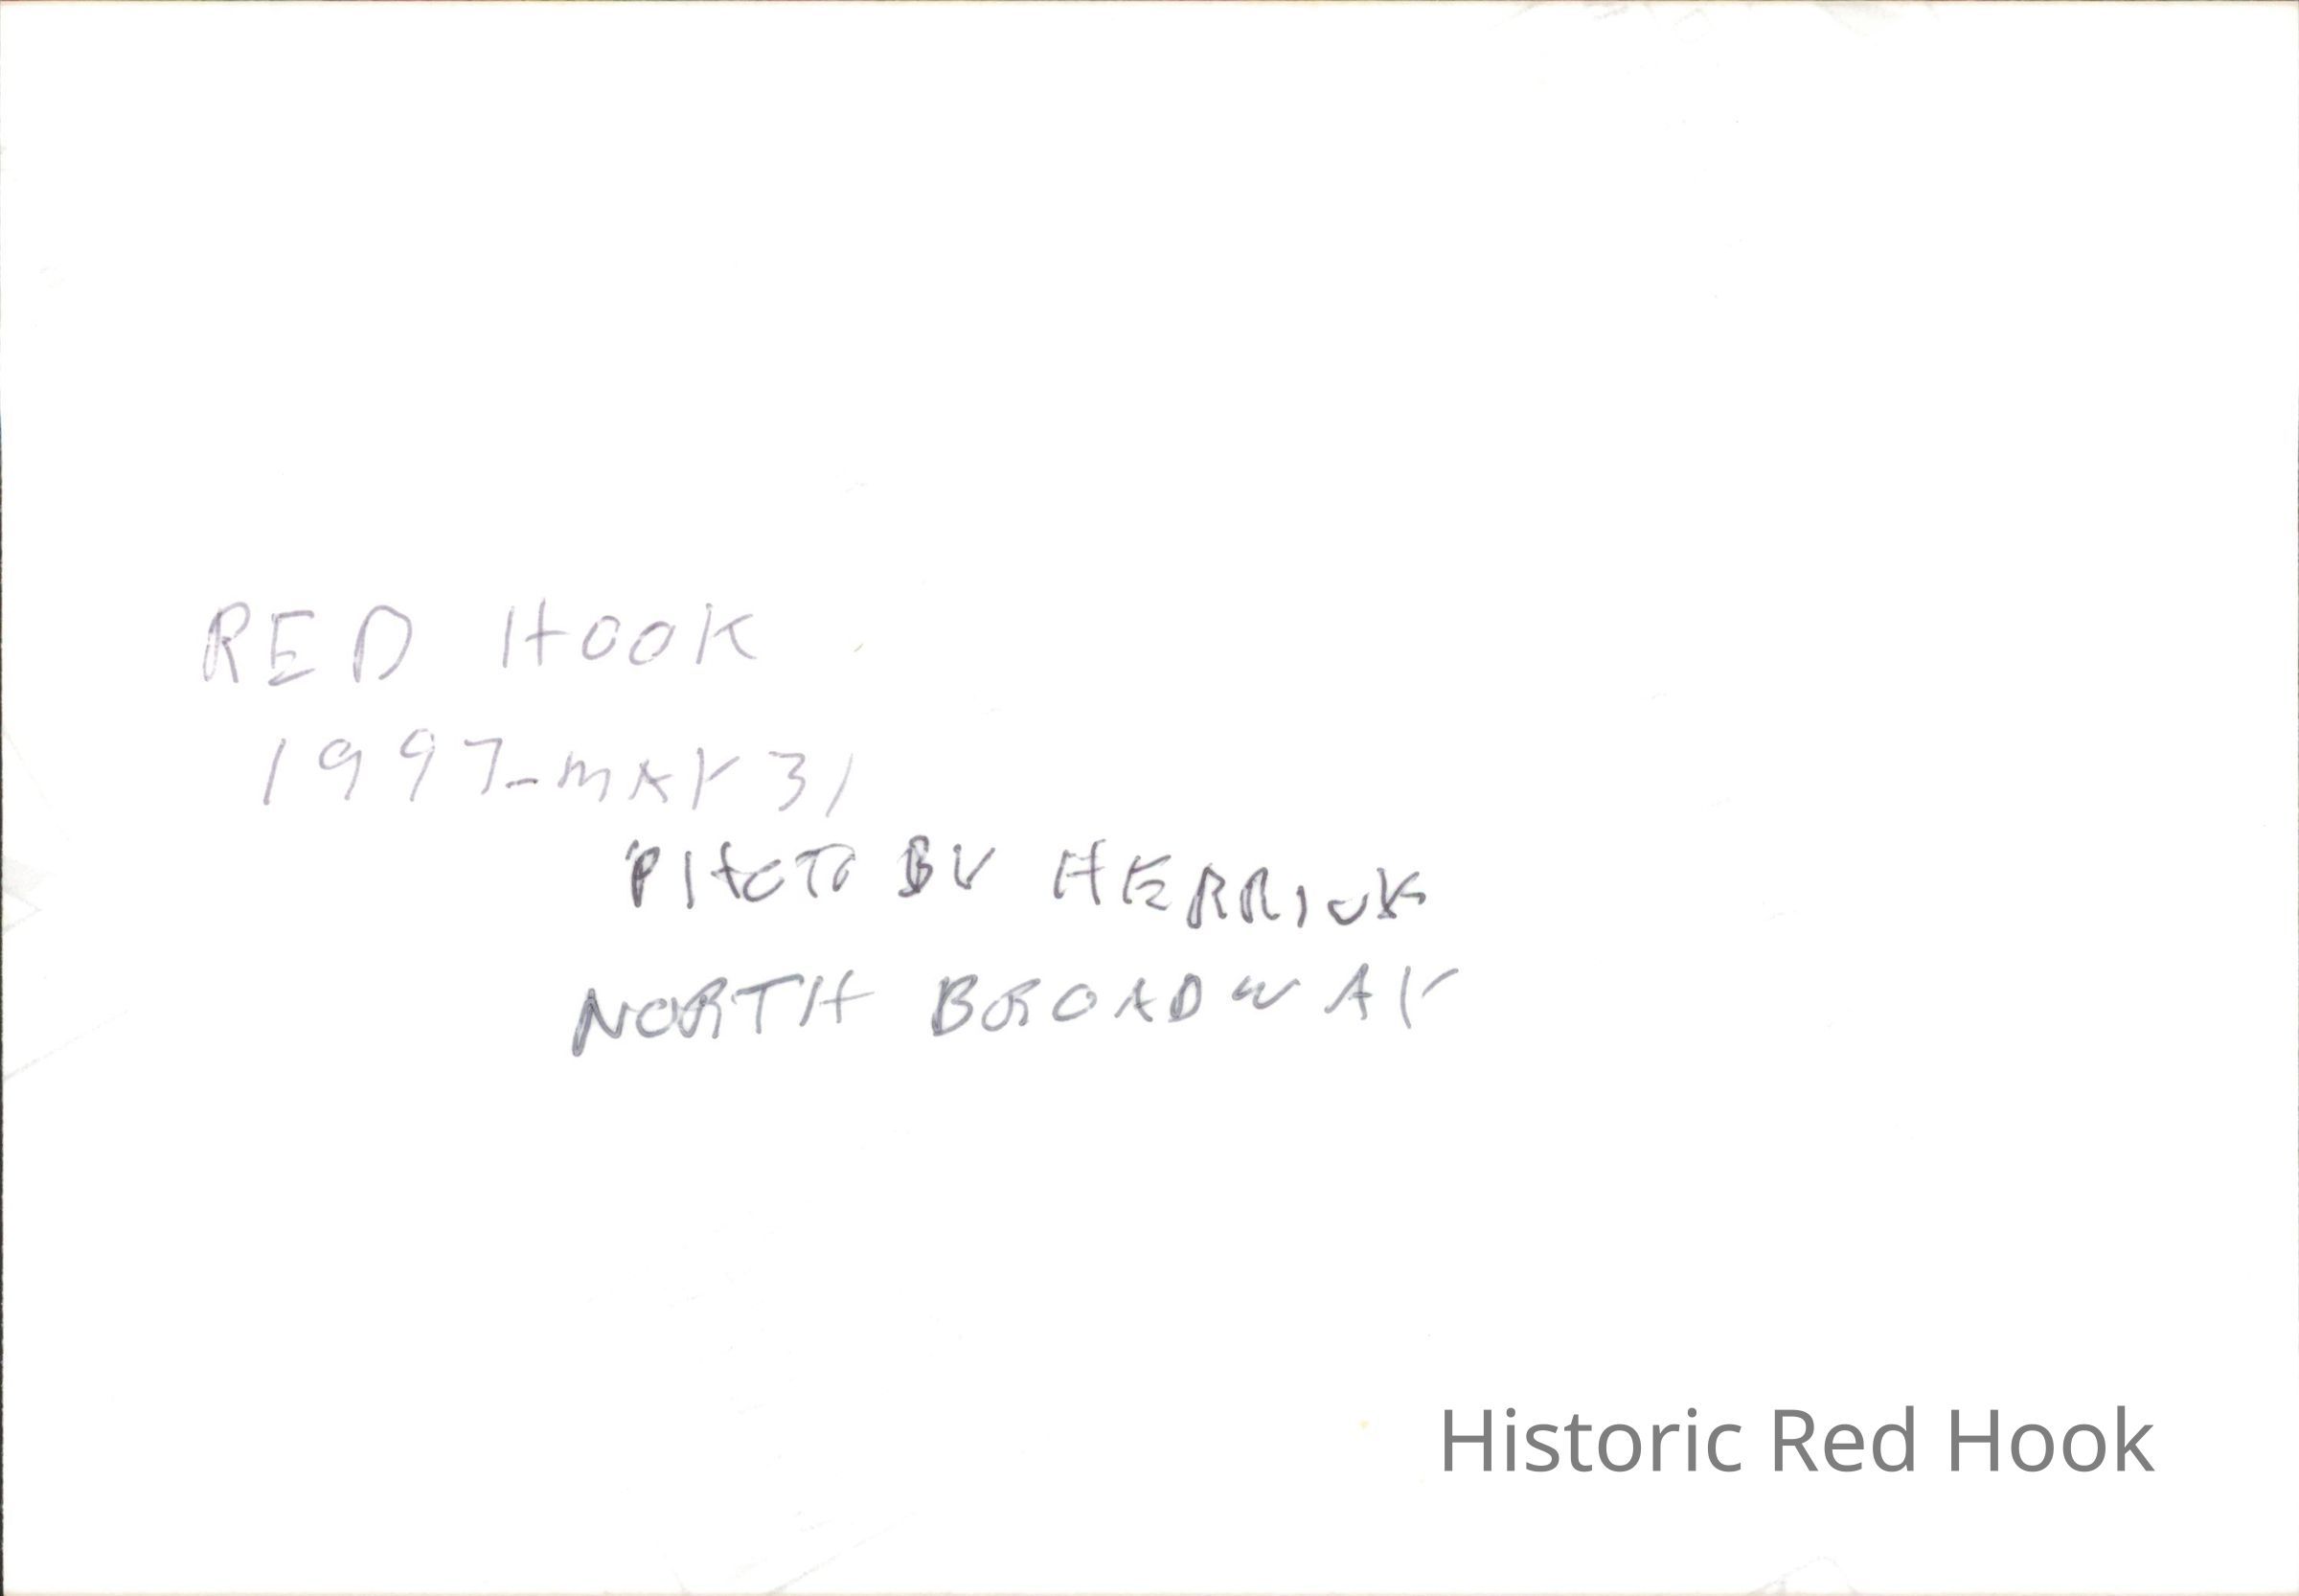 RED HOOK
1997-MAY 31
PHOTO BY HERRICK
NORTH BROADWAY
Historic Red Hook